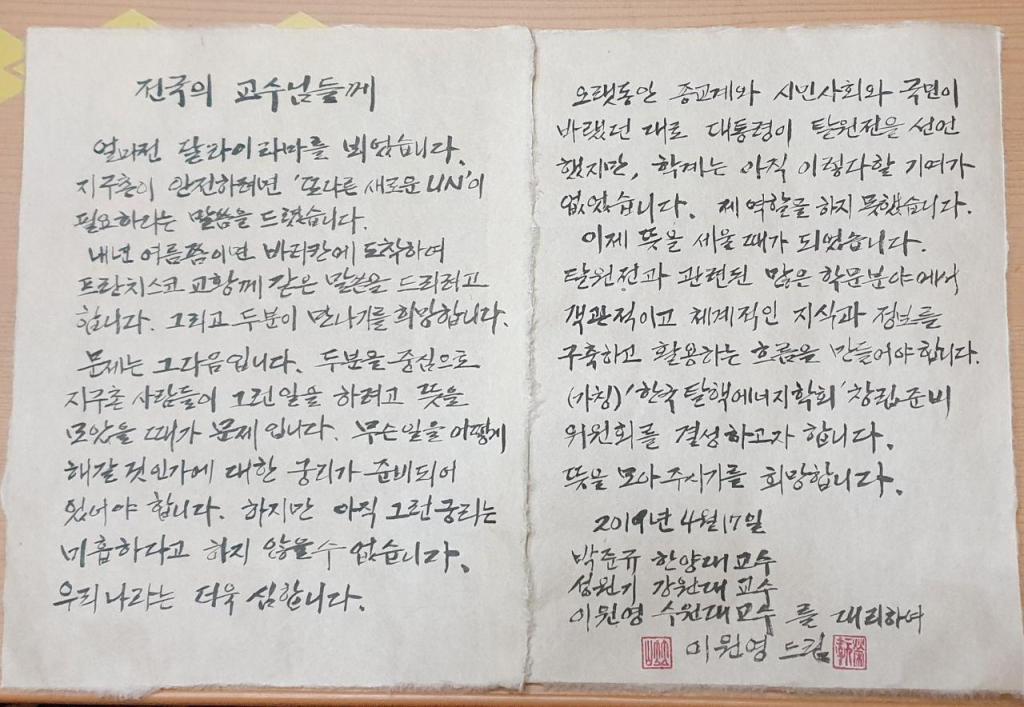 전국의 교수님들께
얼마전 달라이라마를 뵈었습니다.
지구촌이 안전하려면 '또다른 새로운 UN'이
필요하다는 말씀을 드렸습니다.
내년 여름쯤이면 바티칸에 도착하여
프란치스코 교황께 같은 말씀을 드리려고
합니다. 그리고 두분이 만나기를 희망합니다.
문제는 그다음입니다. 두분을 중심으로
지구촌 사람들이 그런일을 하려고 뜻을
모았을 때가 문제입니다. 무슨일을 어떻게
해갈 것인가에 대한 궁리가 준비되어
있어야 합니다. 하지만 아직 그런궁리는
미흡하다고 하지 않을수 없습니다.
우리나라는 더욱 심합니다.
오랫동안 종교계와 시민사회와 국민이
바랬던 대로 대통령이 탈원전을 선언
했지만, 학계는 아직 이렇다할 기여가
없었습니다. 제 역할을 하지 못했습니다.
이제 뜻을 세울 때가 되었습니다.
탈원전과 관련된 많은 학문분야에서
객관적이고 체계적인 지식과 정보를
구축하고 활용하는 흐름을 만들어야합니다.
(가칭)'한국탈핵에너지학회'창립준비
위원회를 결성하고자 합니다.
뜻을 모아주시기를 희망합니다.
2019년 4월17일
박준규 한양대교수
성원기 강원대 교수
이원영 수원대교수 를 대리하여
이원영 드림